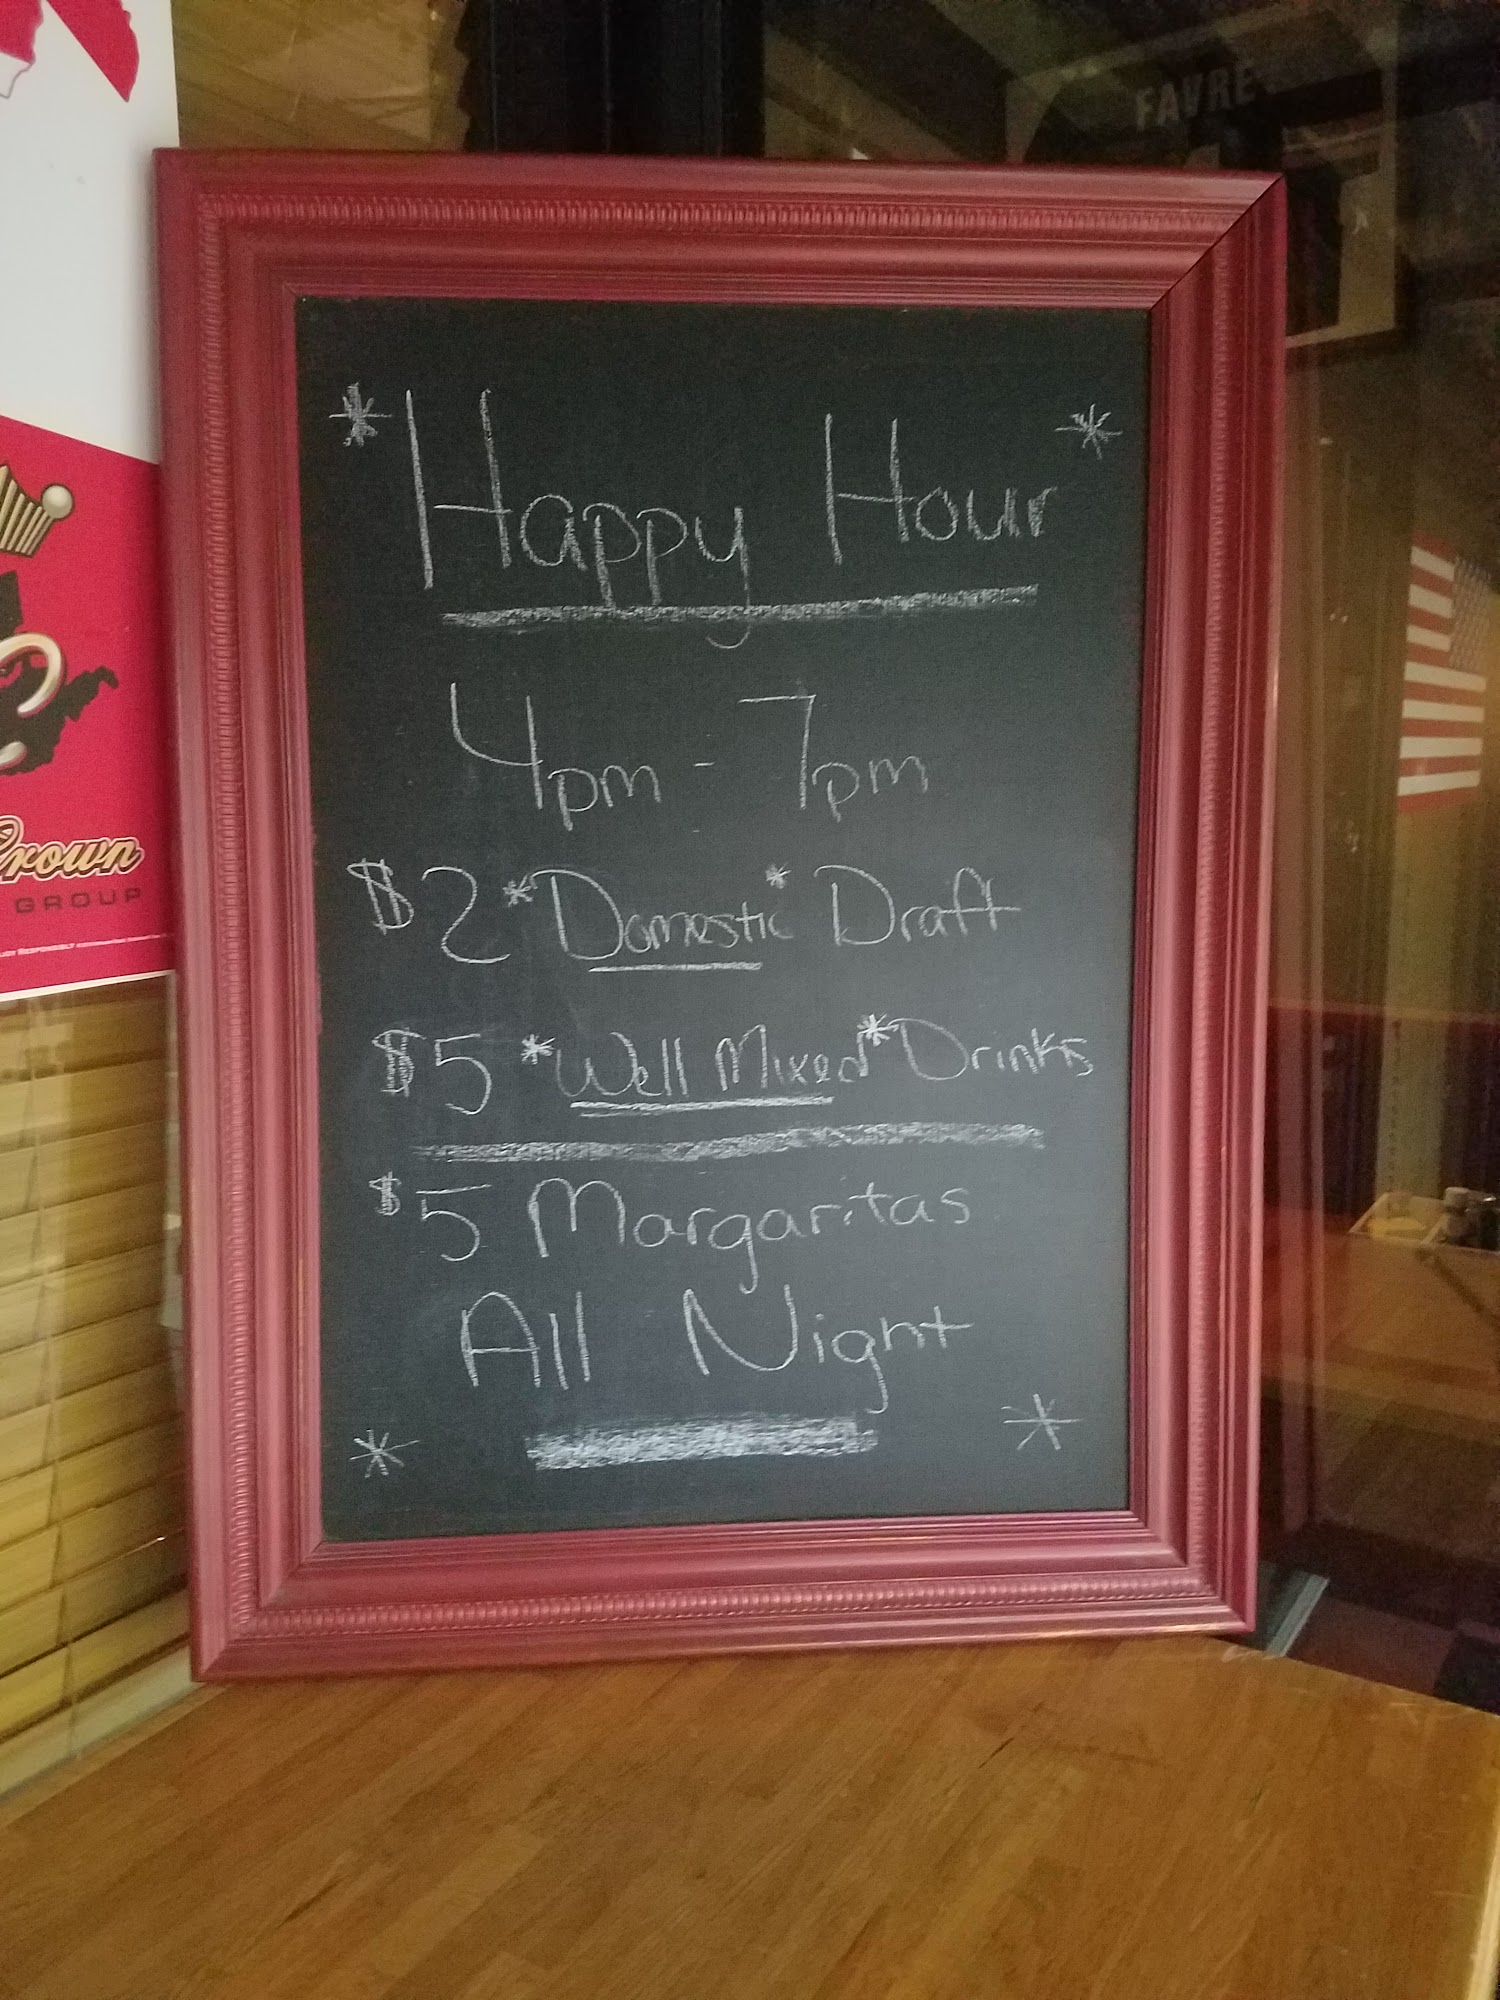 FAVRE
* Happy Hour *
4pm - 7pm
$2 *Domestic* Draft
$5 *Well Mixed* Drinks
$5 Margaritas
All Night
* *
Crown
GROUP